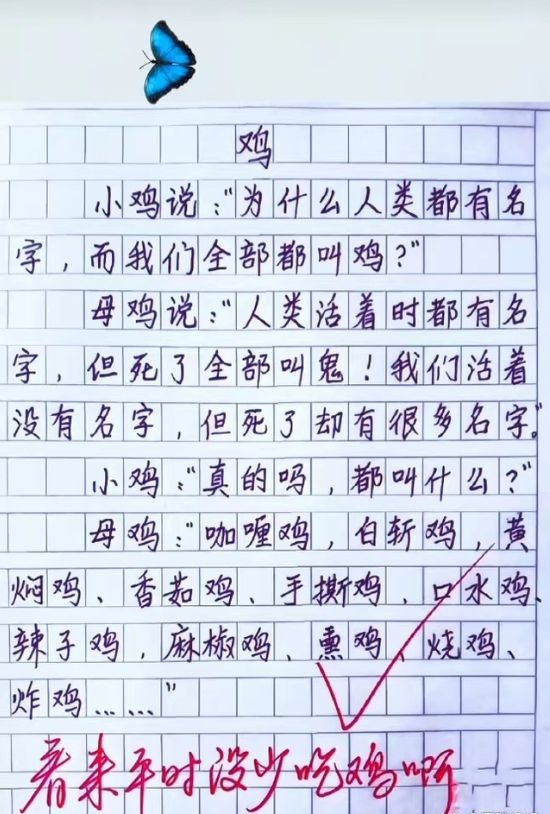 鸡
小鸡说:"为什么人类都有名
字,而我们全部都叫鸡?"
母鸡说:"人类活着时都有名
字,但死了全部叫鬼!我们活着
没有名字,但死了却有很多名字。"
小鸡:"真的吗,都叫什么?"
母鸡:"咖喱鸡,白斩鸡,黄
焖鸡、香茹鸡、手撕鸡、口水鸡、
辣子鸡,麻椒鸡、熏鸡、烧鸡、
炸鸡……"
看来平时没少吃鸡啊